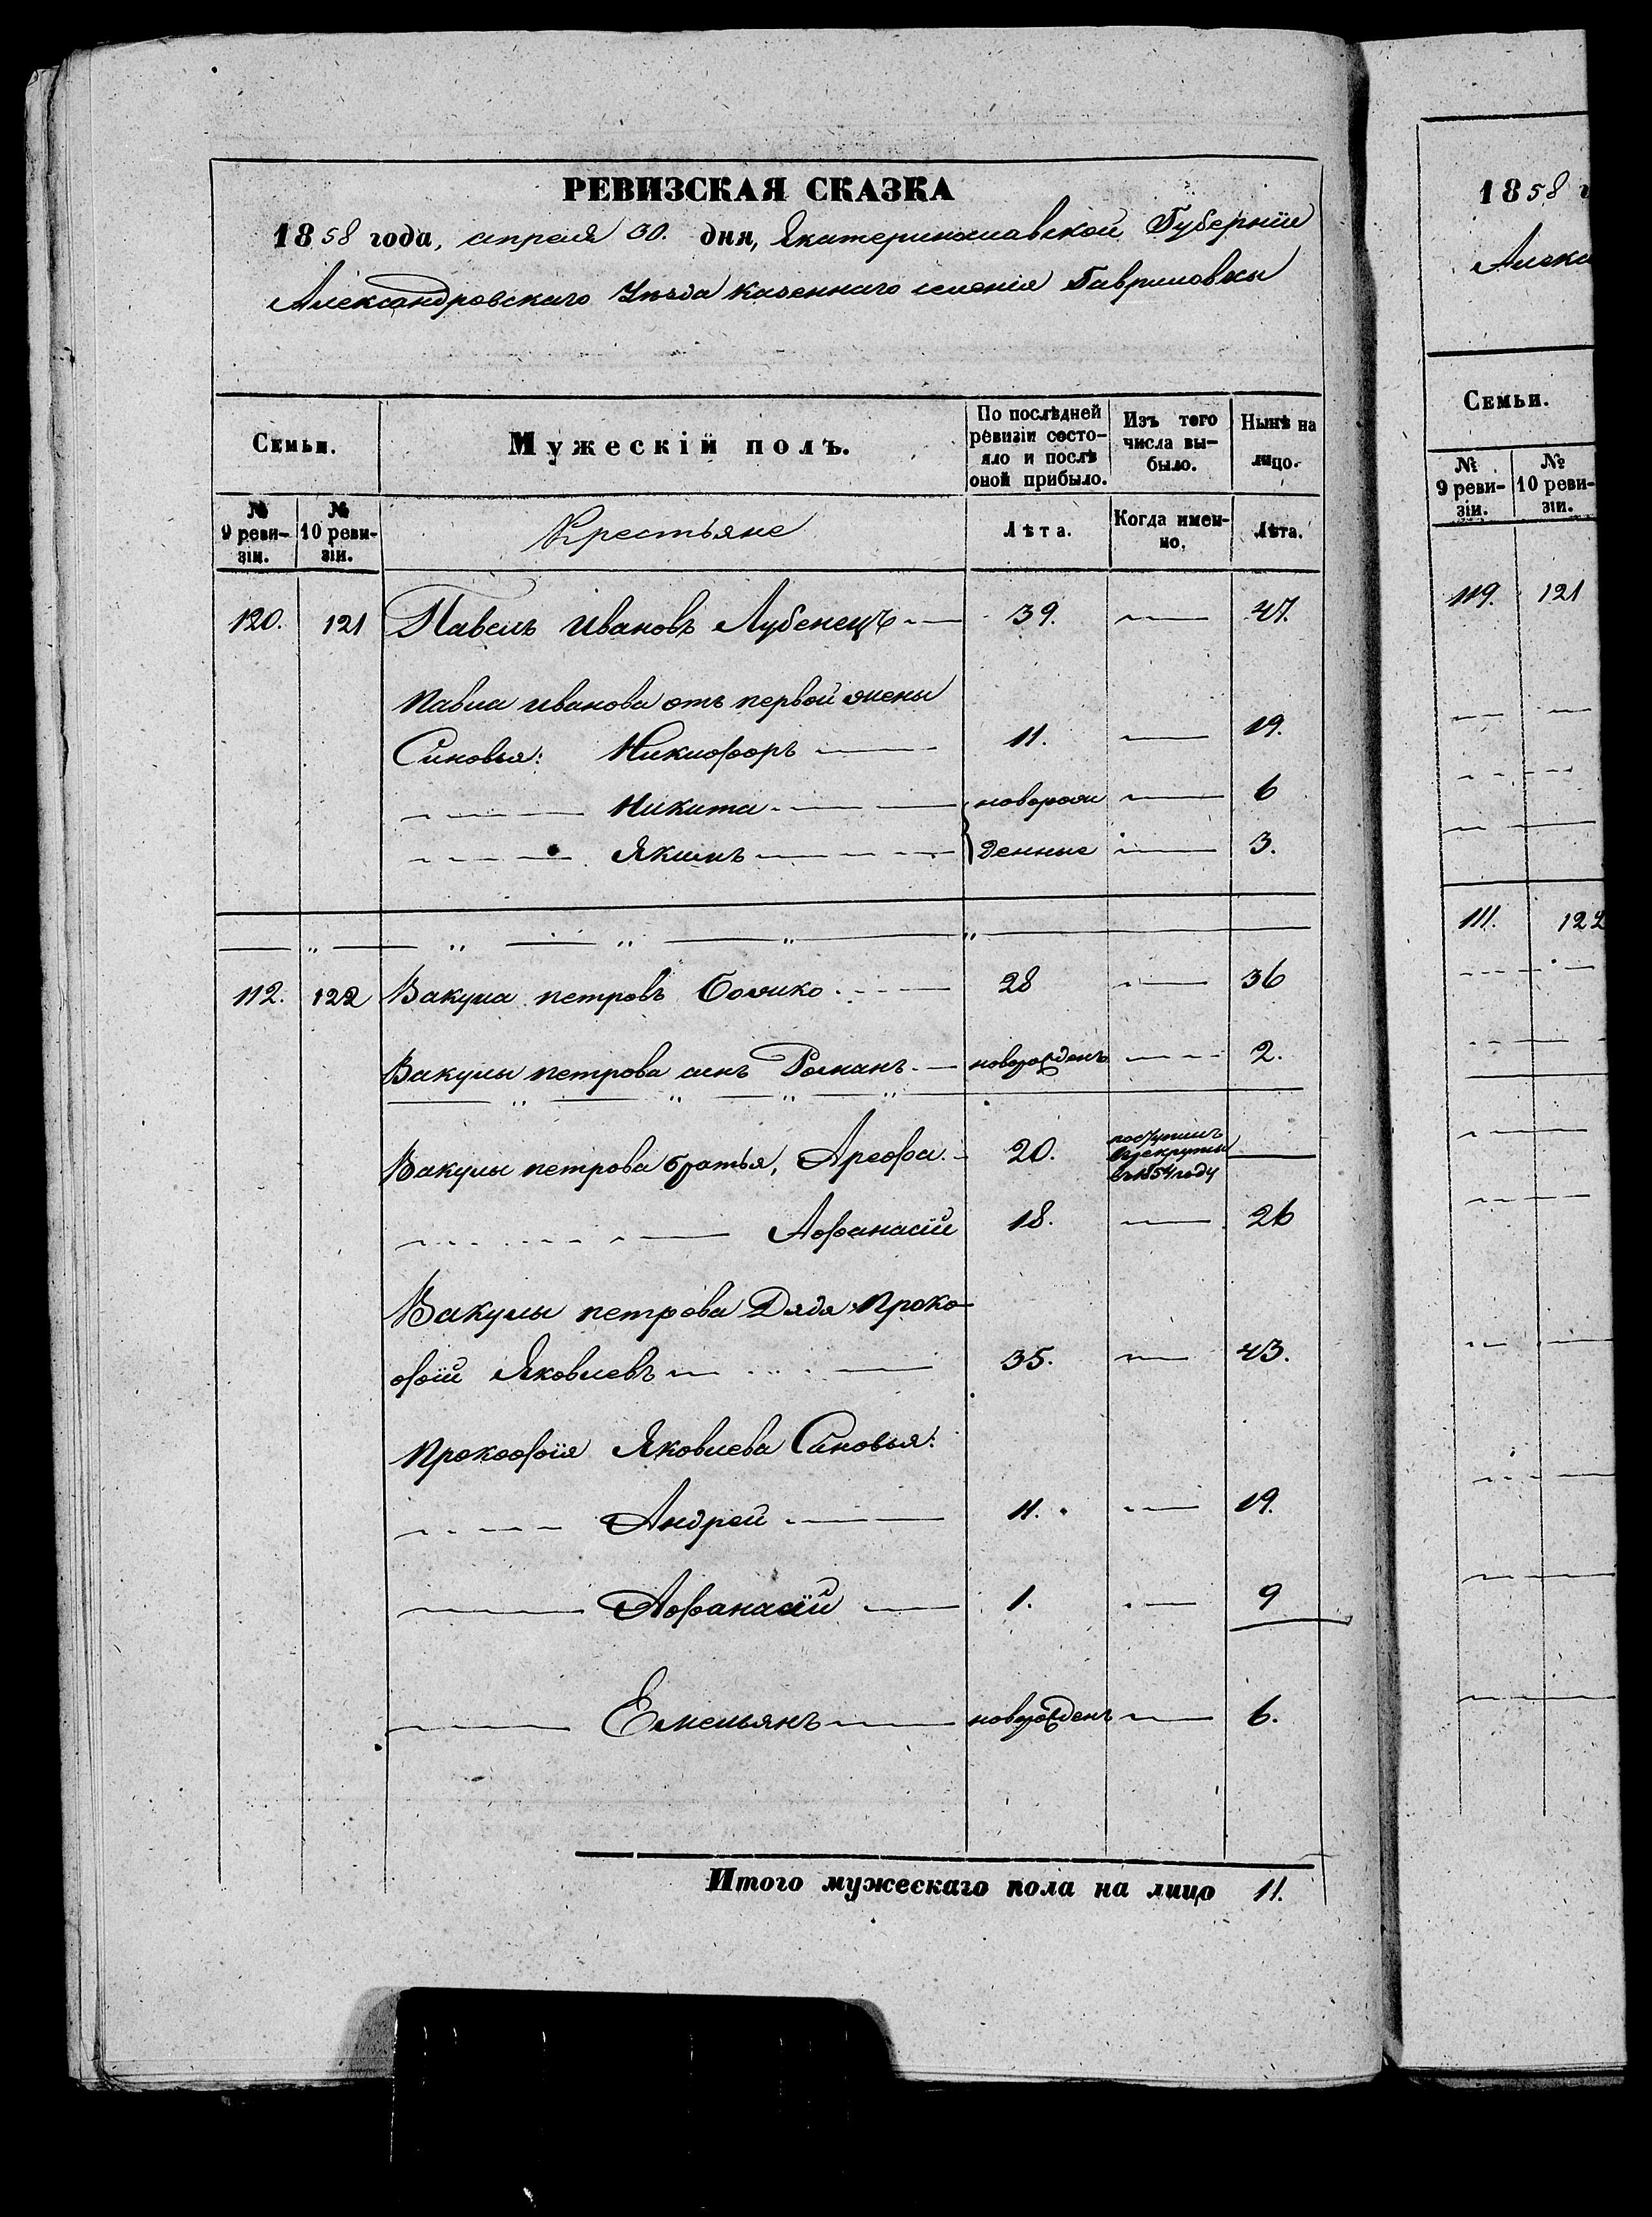 РЕВИЗСКАЯ СКАЗКА
1858 года, апреля 30. дня, Екатеринославской Губерніи
Александровскаго Уѣзда казеннаго селенія Гавриловки
Семьи.
Мужескій полъ.
По послѣдней ревизіи состояло и послѣ оной прибыло.
Изъ того числа выбыло.
Нынѣ на лицо.
№ 9 ревизіи.
№ 10 ревизіи.
Крестьяне
Лѣта.
Когда именно.
Лѣта.
120. 121 Павелъ Ивановъ Лубенецъ — 39. — 47.
Павла Иванова отъ первой жены
Сыновья: Никифоръ — 11. — 19.
— Никита — новорож — 6
— Якимъ — денные — 3.
112. 122 Вакула петровъ — 28 — 36
Вакулы петрова сынъ Романъ — новорожденъ — 2.
Вакулы петрова братья, Арефа. — 20. поступилъ
въ рекруты
въ 1854 году —
— Афанасій 18. — 26
Вакулы петрова Дядя Проко-
фій Яковлевъ — 35. — 43.
Прокофія Яковлева Сыновья:
— Андрей — 11. — 19.
— Афанасій — 1. — 9
— Емельянъ — новорожденъ — 6.
Итого мужескаго пола на лицо 11.
1858 г
Алекса
Семьи.
№ 9 ревизіи.
№ 10 ревизіи.
119. 121
111. 122